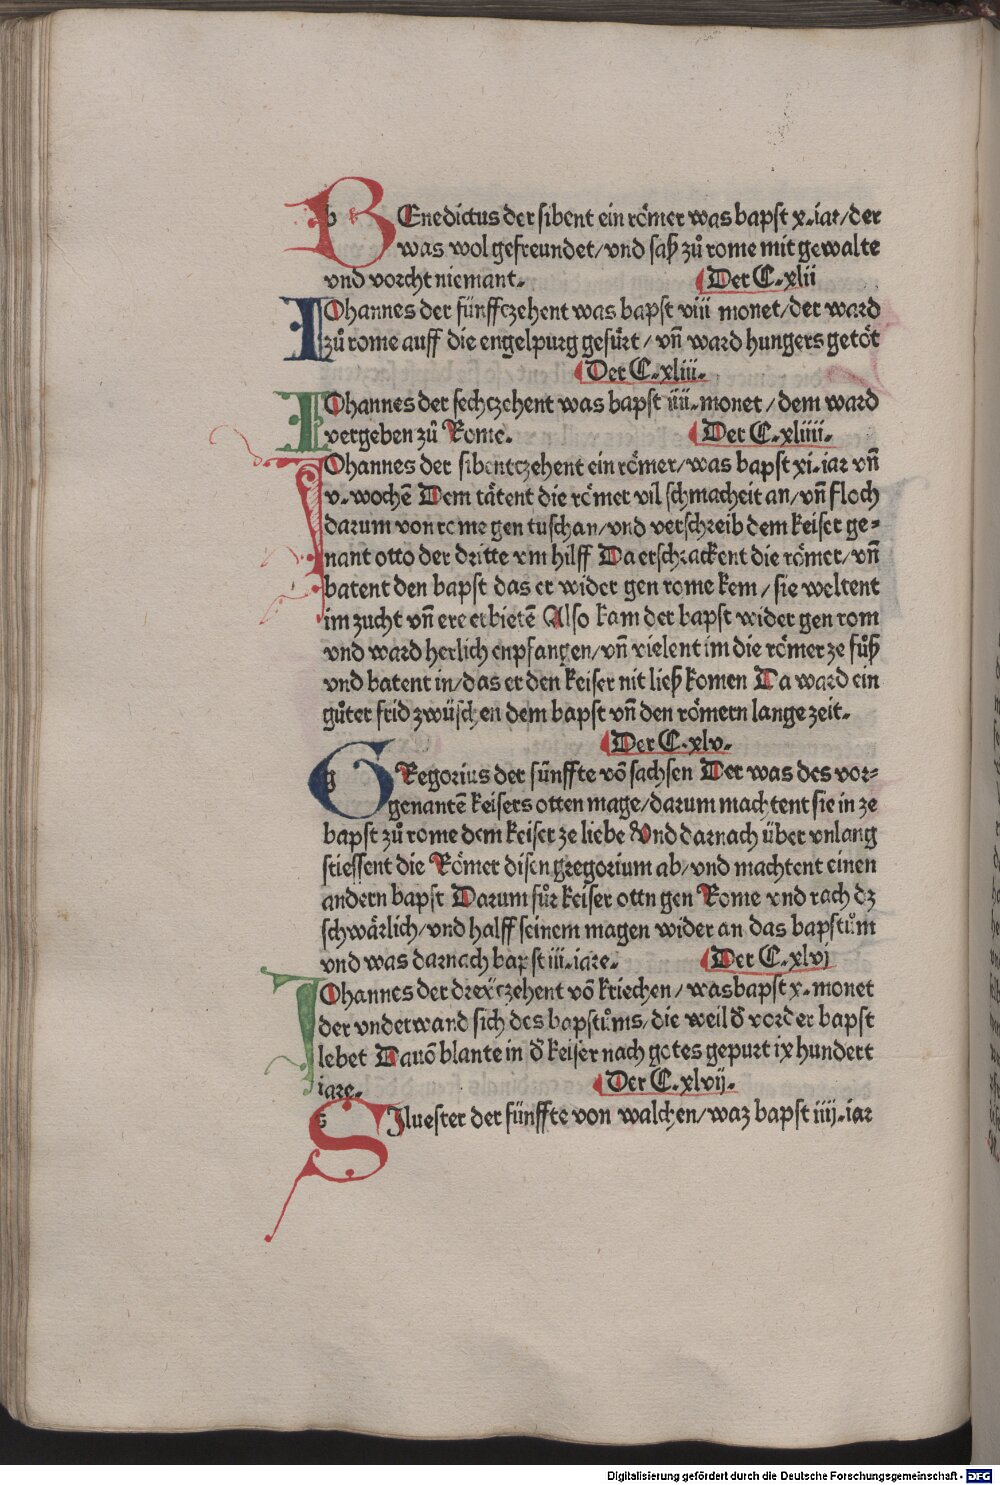 BEnedictus der sibent ein roͤmer was bapst x·iar/der
was wol gefreundet/vnd saß zuͦ rome mit gewalte
vnd vorcht niemant·    Der C·xlii
IOhannes der fünffczehent was bapst viii monet/der ward
zuͦ rome auff die engelpurg gefuͤrt/vn̄ ward hungers getoͤt
Der C·xliii·
IOhannes der sechczehent was bapst iiii·monet/dem ward
vergeben zuͦ Rome·    Der C·xliiii·
IOhannes der sibentczehent ein roͤmer/was bapst xi·iar vn̄
v·wochē Dem taͤtent die roͤmer vil schmacheit an/vn̄ floch
darum von rome gen tuschan/vnd verschreib dem keiser ge-
nant otto der dritte vm hilff Da erschrackent die roͤmer/vn̄
batent den bapst das er wider gen rome kem/sie weltent
im zucht vn̄ ere erbietē Also kam der bapst wider gen rom
vnd ward herlich enpfangen/vn̄ vielent im die roͤmer ze fuͦß
vnd batent in/das er den keiser nit ließ komen Da ward ein
guͦter frid zwüschen dem bapst vn̄ den roͤmern lange zeit·
Der C·xlv·
GRegorius der fünffte vō sachsen Der was des vor-
genantē keisers otten mage/darum machtent sie in ze
bapst zuͦ rome dem keiser ze liebe Vnd darnach über vnlang
stiessent die Roͤmer disen gregorium ab/vnd machtent einen
andern bapst Darum fuͦr keiser ottn gen Rome vnd rach dz
schwaͤrlich/vnd halff seinem magen wider an das bapstuͦm
vnd was darnach bapst iii·iare·    Der C·xlvi
IOhannes der dreÿczehent vō kriechen/was bapst x·monet
der vnderwand sich des bapstuͦms/die weil d̄ vorder bapst
lebet Dauō blante in d̄ keiser nach gotes gepurt ix hundert
iare·    Der C·xlvij·
SIluester der fünffte von walchen/waz bapst iiij·iar
Digitalisierung gefördert durch die Deutsche Forschungsgemeinschaft - DFG